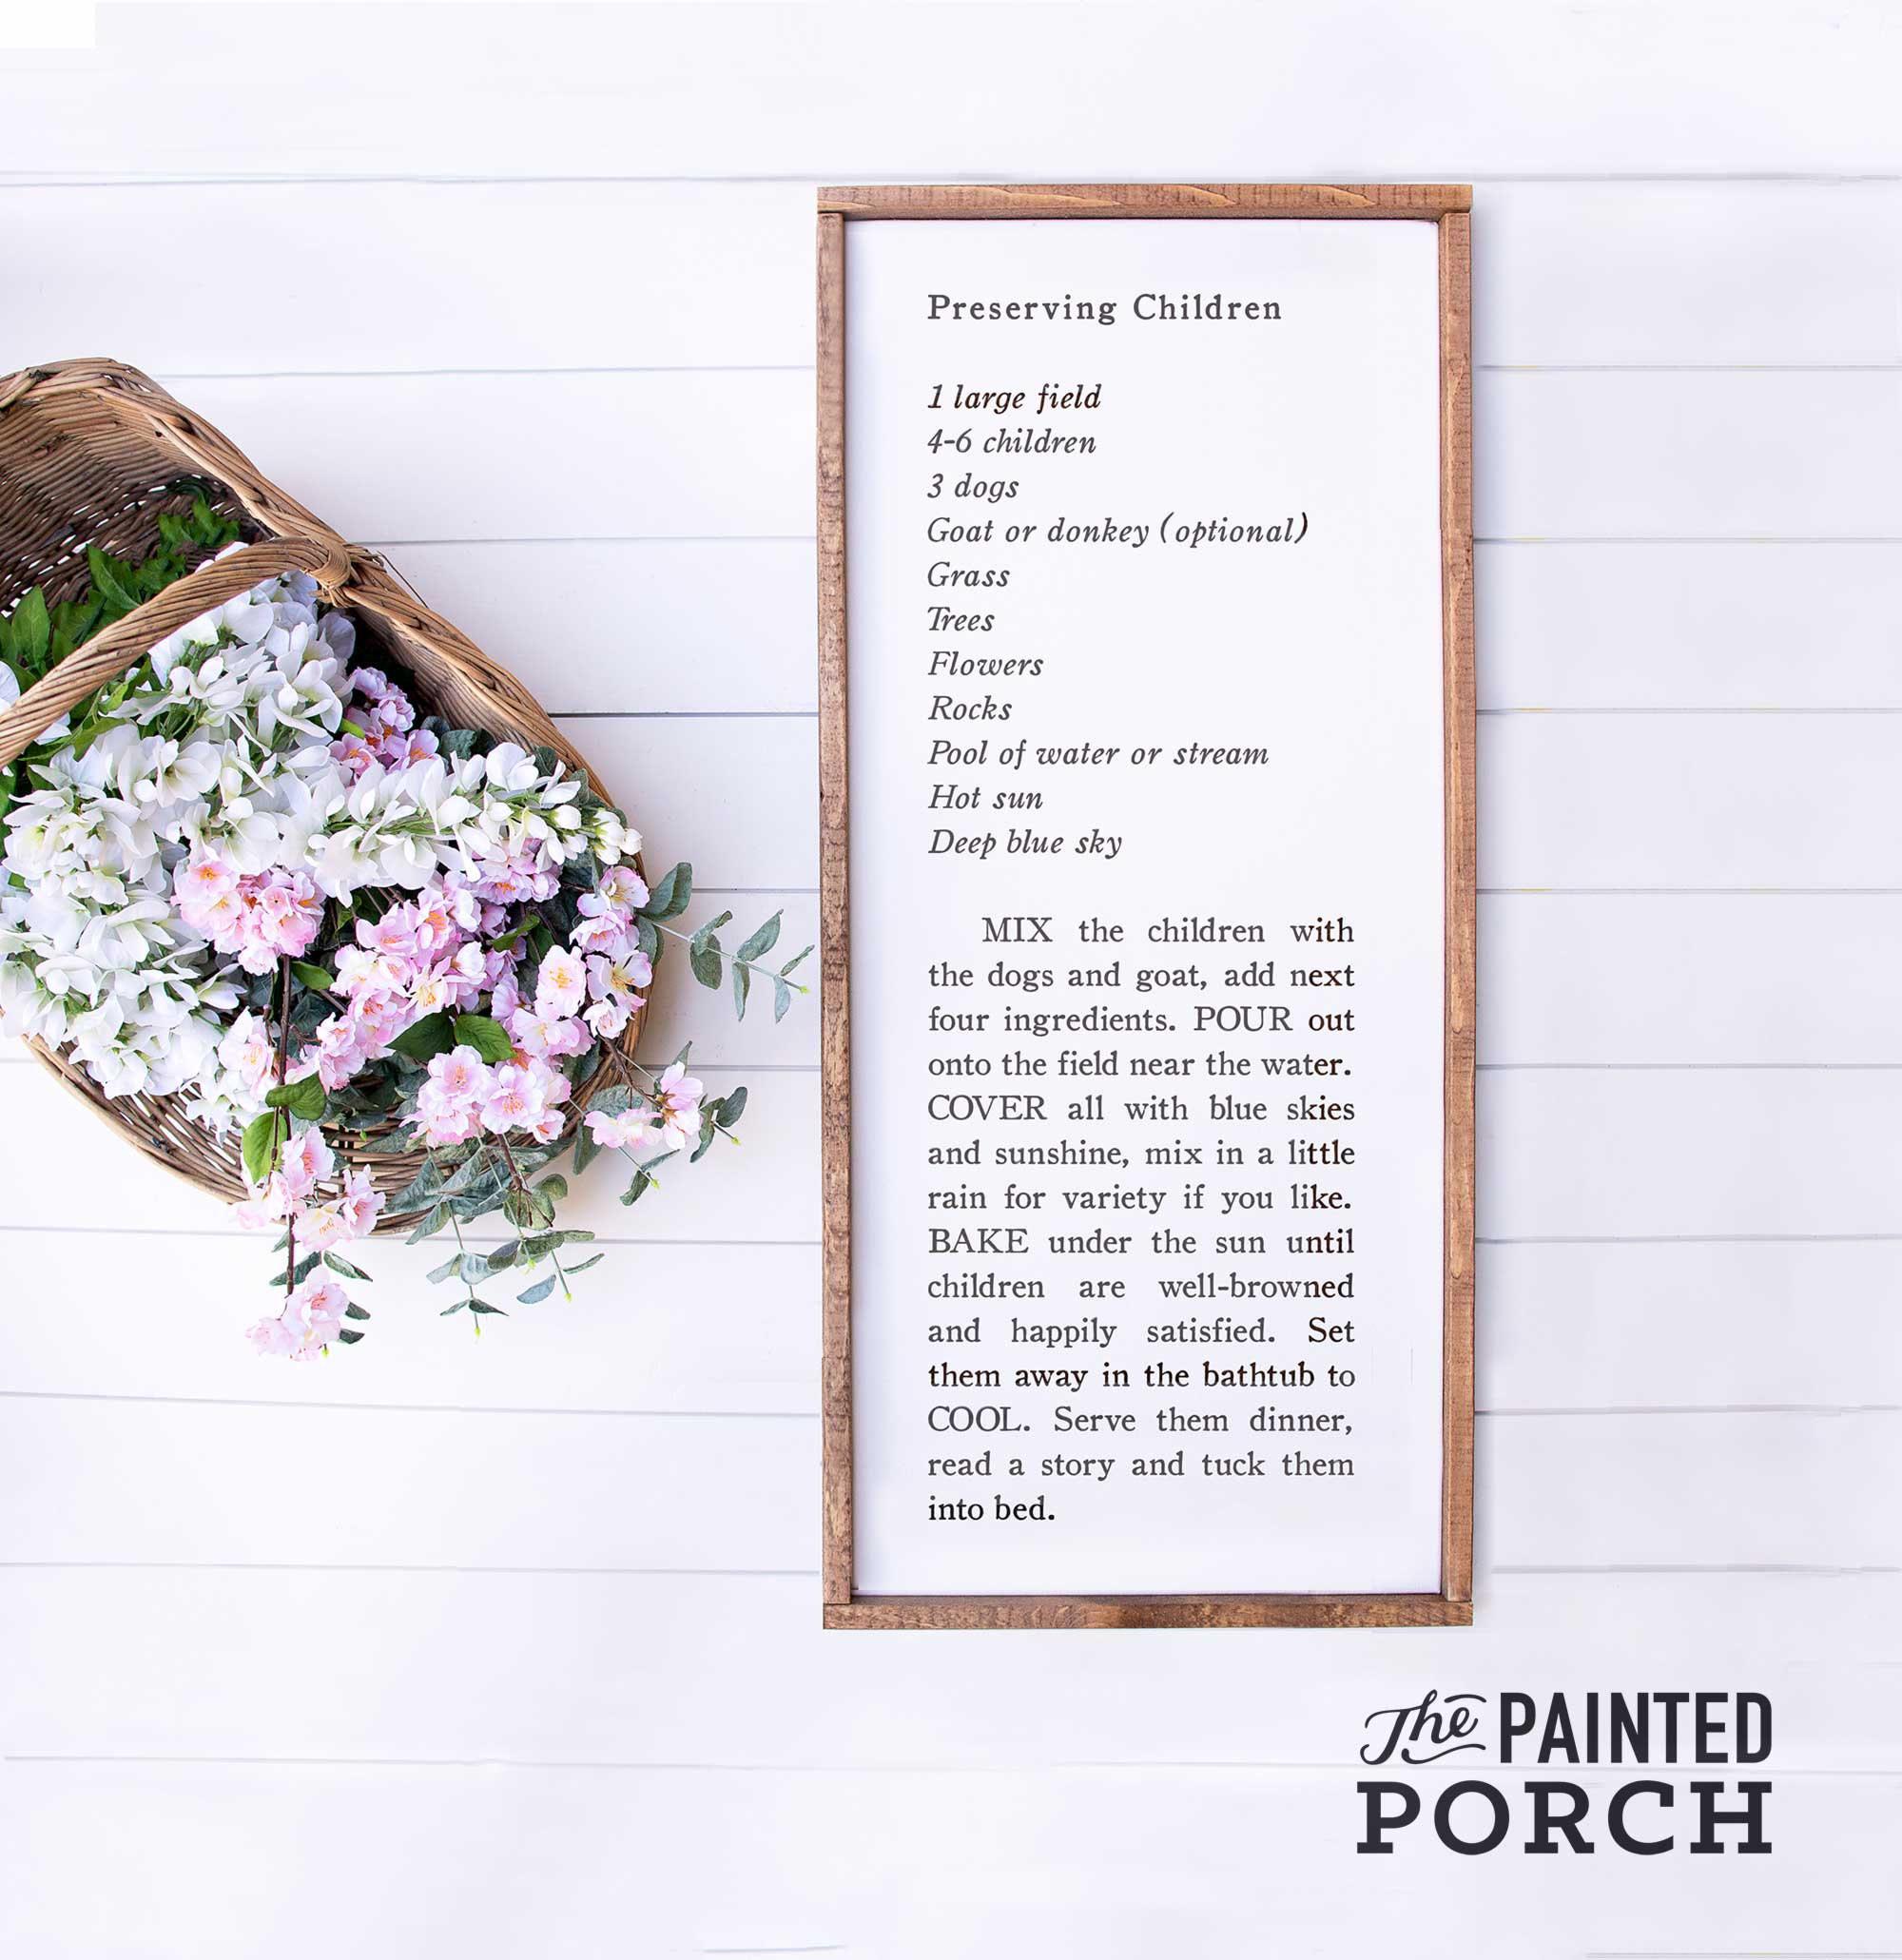 Preserving Children
1 large field
4-6 children
3 dogs
Goat or donkey (optional)
Grass
Trees
Flowers
Rocks
Pool of water or stream
Hot sun
Deep blue sky
MIX the children with
the dogs and goat, add next
four ingredients. POUR out
onto the field near the water.
COVER all with blue skies
and sunshine, mix in a little
rain for variety if you like.
BAKE under the sun until
children are well-browned
and happily satisfied. Set
them away in the bathtub to
COOL. Serve them dinner,
read a story and tuck them
into bed.
The PAINTED
PORCH